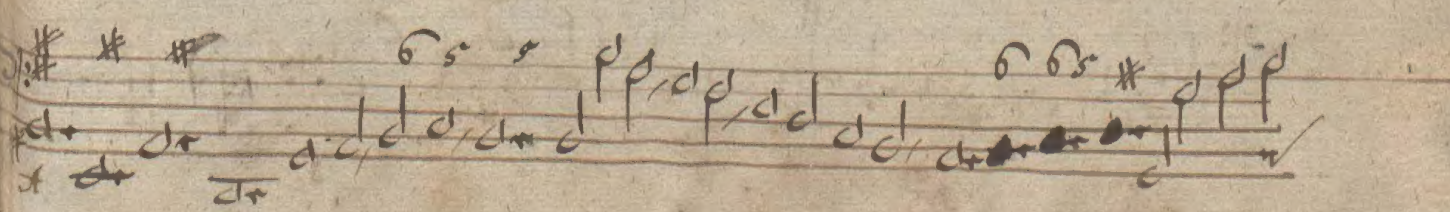 # # # 6 5 5 6 6 5 #